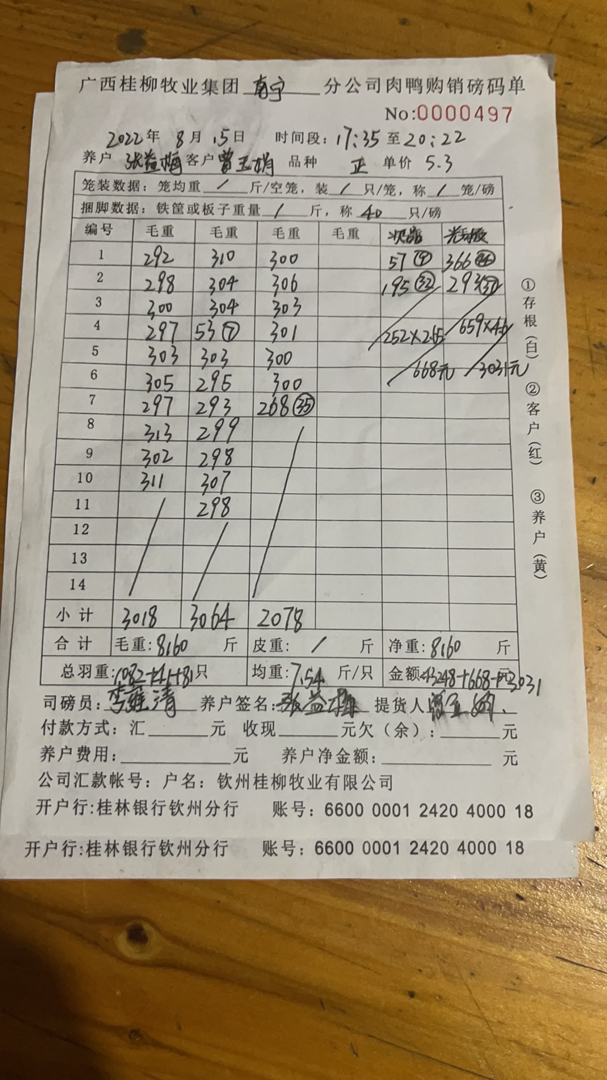 广西桂柳牧业集团 南宁 分公司肉鸭购销磅码单
No:0000497
2022年 8月 15日 时间段: 17:35 至 20:22
养户 张益梅 客户 曾玉娟 品种 正 单价 5.3
笼装数据: 笼均重 / 斤/空笼, 装 / 只/笼, 称 / 笼/磅
捆脚数据: 铁筐或板子重量 / 斤, 称 40 只/磅
编号 毛重 毛重 毛重 毛重 次品
1 292 310 300 57 366
2 298 304 306 195 (32) 293
3 300 304 303
4 297 53 (7) 301 252×265
5 303 303 300 668元 3031元
6 305 295 300
7 297 293 268 (35)
8 313 299
9 302 298
10 311 307
11 298
12
13
14
小计 3018 3064 2078
合计 毛重: 8160 斤 皮重: / 斤 净重: 8160 斤
总羽重: 1082+41+81 只 均重: 7.54 斤/只 金额: 43248+668+3031 元
司磅员: 养户签名: 张益梅 提货人
付款方式: 汇 元 收现 元欠(余): 元
养户费用: 元 养户净金额: 元
公司汇款帐号: 户名: 钦州桂柳牧业有限公司
开户行:桂林银行钦州分行 账号: 6600 0001 2420 4000 18
开户行:桂林银行钦州分行 账号: 6600 0001 2420 4000 18
①存根(白) ②客户(红) ③养户(黄)